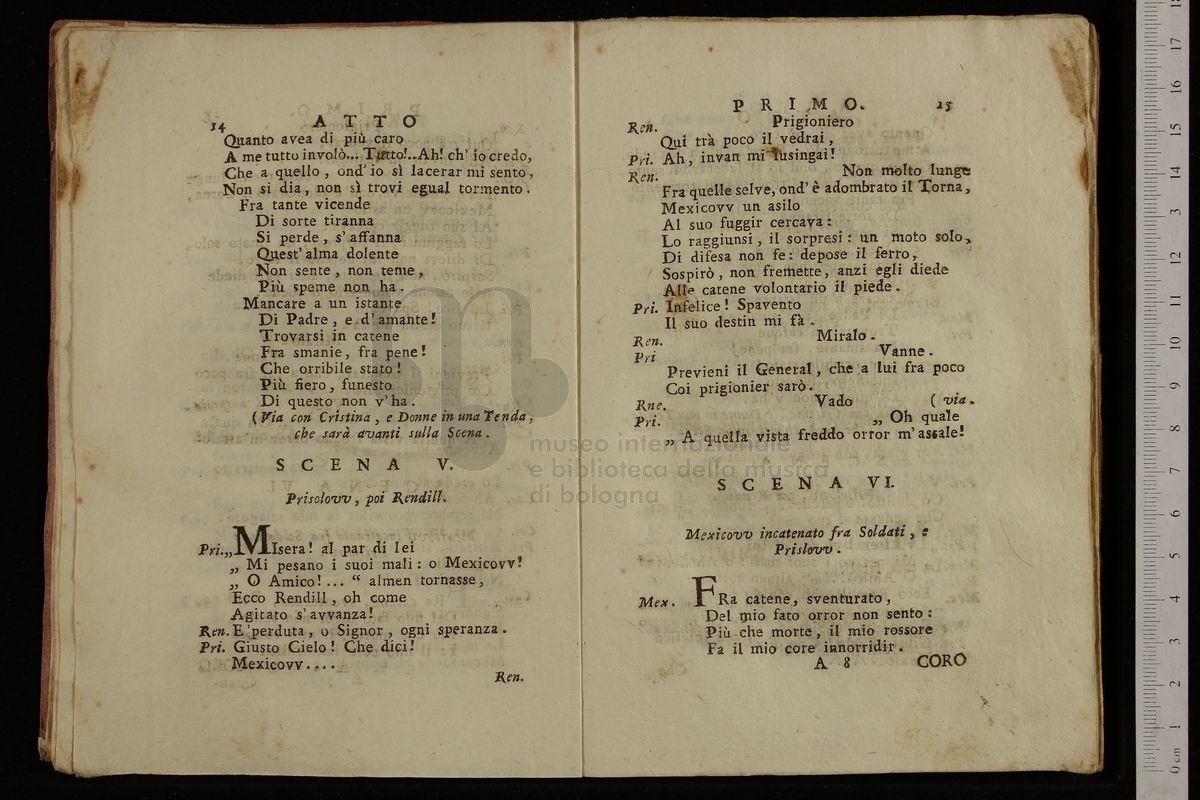 14 ATTO
Quanto avea di più caro
A me tutto involò... Tutto!..Ah! ch' io credo,
Che a quello, ond' io sì lacerar mi sento,
Non si dia, non sì trovi egual tormento.
Fra tante vicende
Di sorte tiranna
Si perde, s' affanna
Quest' alma dolente
Non sente, non teme,
Più speme non ha.
Mancare a un istante
Di Padre, e d' amante!
Trovarsi in catene
Fra smanie, fra pene!
Che orribile stato!
Più fiero, funesto
Di questo non v' ha.
(Via con Cristina, e Donne in una Tenda,
che sarà avanti sulla Scena.
SCENA V.
Prisolovv, poi Rendill.
Pri.„MIsera! al par di lei
„ Mi pesano i suoi mali: o Mexicovv!
„ O Amico!... “ almen tornasse,
Ecco Rendill, oh come
Agitato s' avvanza!
Ren. E' perduta, o Signor, ogni speranza.
Pri. Giusto Cielo! Che dici!
Mexicovv....
Ren.
PRIMO. 15
Ren. Prigioniero
Qui trà poco il vedrai,
Pri. Ah, invan mi lusingai!
Ren. Non molto lunge
Fra quelle selve, ond' è adombrato il Torna,
Mexicovv un asilo
Al suo fuggir cercava:
Lo raggiunsi, il sorpresi: un moto solo,
Di difesa non fe: depose il ferro,
Sospirò, non fremette, anzi egli diede
Alle catene volontario il piede.
Pri. Infelice! Spavento
Il suo destin mi fà.
Ren. Miralo.
Pri Vanne.
Previeni il General, che a lui fra poco
Coi prigionier sarò.
Rne. Vado (via.
Pri. „ Oh quale
„ A quella vista freddo orror m' assale!
SCENA VI.
Mexicovv incatenato fra Soldati, e
Prislovv.
Mex. FRa catene, sventurato,
Del mio fato orror non sento:
Più che morte, il mio rossore
Fa il mio core innorridir.
A 8 CORO
museo internazionale
e biblioteca della musica
di bologna
0 cm 1 2 3 4 5 6 7 8 9 10 11 12 13 14 15 16 17 18